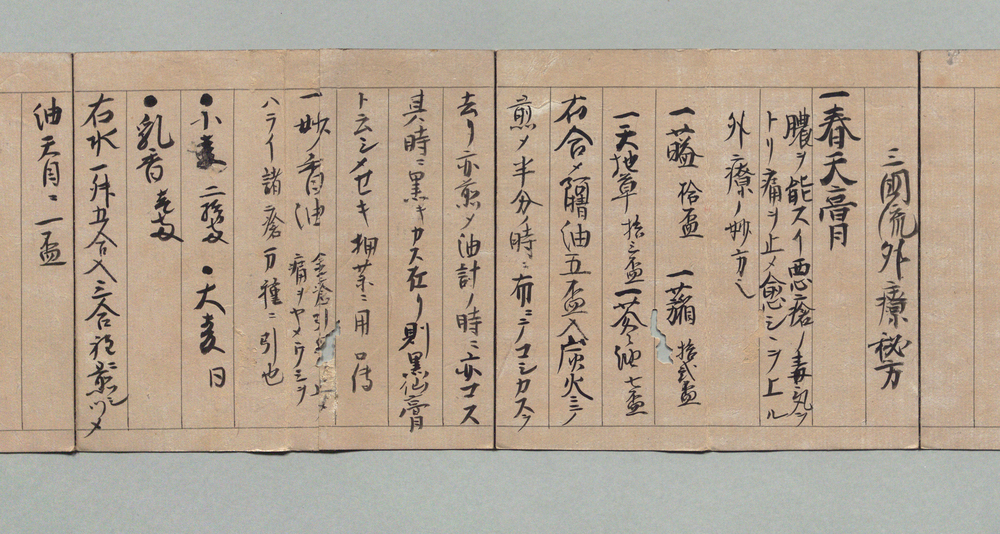 三國流外療秘方
一春天膏
膿ヲ能スイ悪瘡ノ毒氣ヲ
トリ痛ヲ止メ愈シヲ上ル
外療ノ妙方也
一 拾盃 一 拾弐盃
一天地草 拾三盃 一 油七盃
右合メ 油五盃入炭火ニテ
煎メ半分時ニ布ニテコシカスヲ
去リ亦煎メ油計ノ時ニ亦コス
其時ニ黒キカス在リ則黒仙膏
ト云シメセキ 用 口傳
一妙香油 金瘡引 止メ
痛ヲヤメウミヲ
ハライ諸瘡万種ニ引也
●小麦 二 ●大麦 日
●乳香
右水一升五合入三合 煎ツメ
油天目ニ一盃